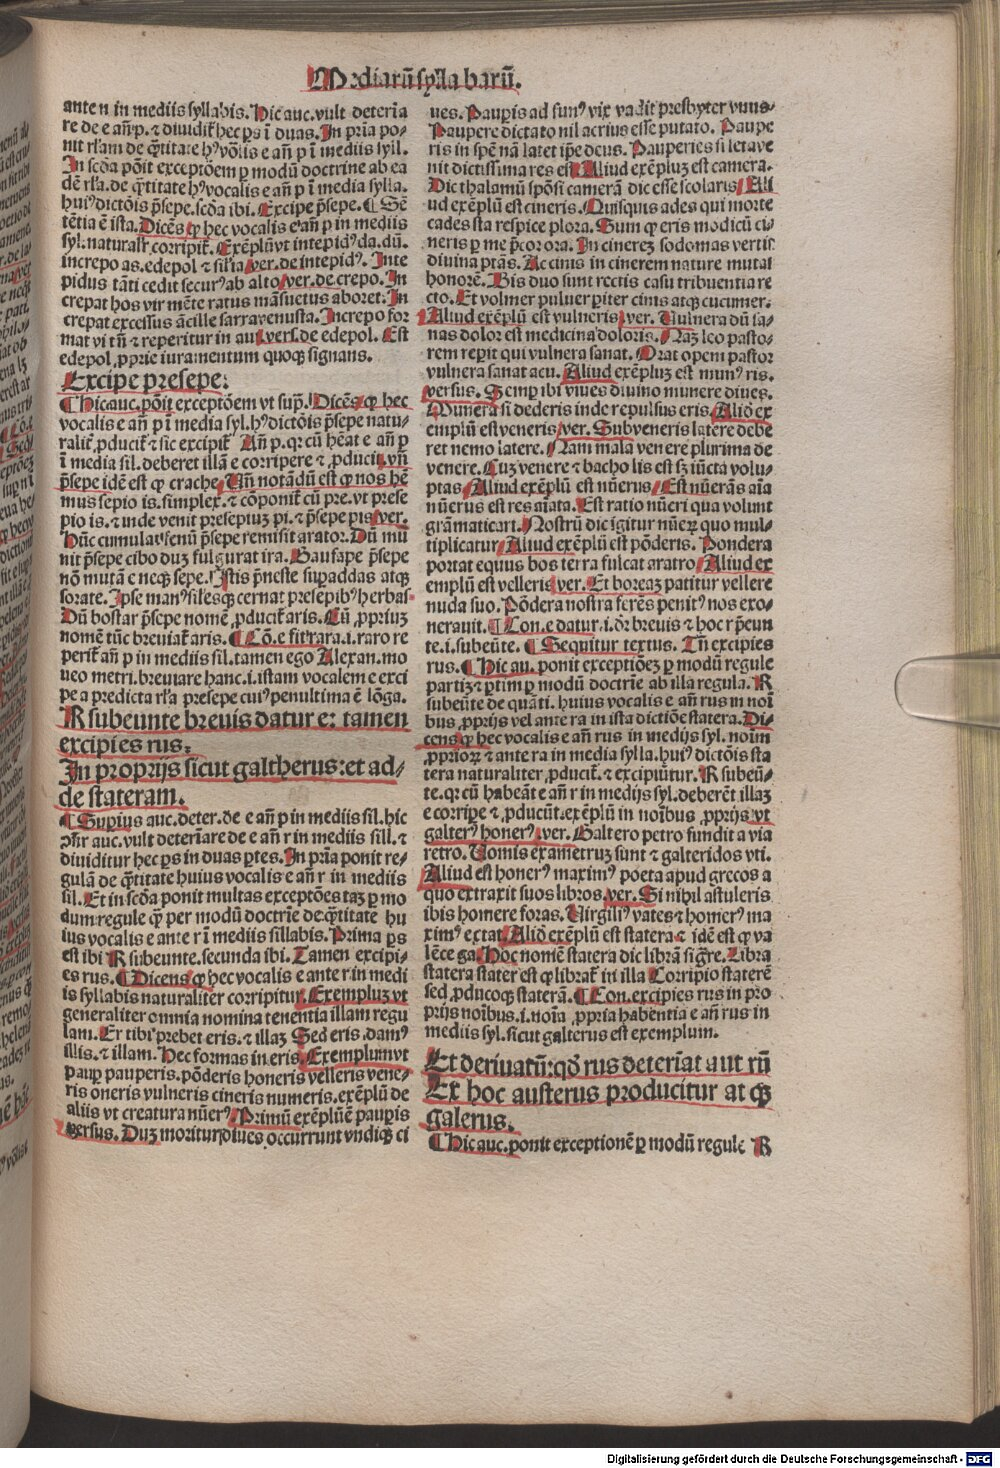 Mediarū syllabarū.
ante n in mediis syllabis. Hic auc. vult deteria
re de e añ p. ⁊ diuidit̃ hec ps ī duas. In pria po-
nit rl'am de q̄titate hꝰ vōlis e añ p ī mediis syll.
In scōa pōit exceptōem ꝑ modū doctrine ab ea
dē rl'a. de q̄titate hꝰ vocalis e añ p ī media sylla.
huiꝰ dictōis p̄sepe. scōa ibi. Excipe p̄sepe. ¶ Sē
tētia ē ista. Dicēs ꝙ hec vocalis e añ p in mediis
syl. naturalr̄ corripit̃. Exēplū vt intepidꝰ da. dū.
increpo as. edepol ⁊ sil'ia ver. de intepidꝰ. Inte
pidus tāti cedit securꝰ ab alto ver. de crepo. In
crepat hos vir mēte ratus māsuetus aboret. In
crepat excessus ācille sarra venusta. Increpo for
mat vi tñ ⁊ reperitur in aui vers. de edepol. Est
edepol ꝓprie iuramentum quoqꝫ signans.
Excipe presepe.
¶ Hic auc. pōit exceptōem vt sup̄. Dicēs ꝙ hec
vocalis e añ p ī media syl. hꝰ dictōis p̄sepe natu-
ralit̃ ꝓducit̃ ⁊ sic excipit̃. Añ p. q̄ cū hēat e añ p
ī media sil. deberet illā e corripere ⁊ ꝓducit vñ
p̄sepe idē est ꝙ crache. Uñ notādū est ꝙ nos hē
mus sepio is. simplex. ⁊ cōponit̃ cū pre. vt prese
pio is. ⁊ inde venit presepiuꝫ pi. ⁊ p̄sepe pis ver.
Hūc cumulat fenū p̄sepe remisit arator. Dū mu
nit p̄sepe cibo duꝫ fulgurat ira. Gausape p̄sepe
nō mutā e necqꝫ sepe. Istis p̄neste suꝑaddas atqꝫ
sorate. Ipse manꝰ sil'esqꝫ cernat presepibꝰ herbas
Dū bostar p̄sepe nomē ꝓducit̃ aris. Cū ꝓpriuꝫ
nomē tūc breuiat̃ aris. ¶ Cō. e fit rara .i. raro re
perit̃ añ p in mediis sil. tamen ego Alexan. mo
ueo metri. breuiare hanc .i. istam vocalem e exci
pe a predicta rl'a presepe cuiꝰ penultima ē lōga.
R subeunte breuis datur e: tamen
excipies rus.
In proprijs sicut galtherus: et ad-
de stateram.
¶ Suꝑius auc. deter. de e añ p in mediis sil. hic
ↄñr auc. vult deteriare de e añ r in mediis sill. ⁊
diuiditur hec ps in duas ꝑtes. In pria ponit re-
gulā de q̄titate huius vocalis e añ r in mediis
sil. Et in scōa ponit multas exceptōes taꝫ ꝑ mo
dum regule q̄ꝫ per modū doctrie de q̄titate hu
ius vocalis e ante r ī mediis sillabis. Prima ps
est ibi R subeunte. secunda ibi. Tamen excipi-
es rus. ¶ Dicens ꝙ hec vocalis e ante r in medi
is syllabis naturaliter corripitur. Exempluꝫ vt
generaliter omnia nomina tenentia illam regu
lam. Er tibi prebet eris. ⁊ illaꝫ Sed eris. damꝰ
illis. ⁊ illam. Hec formas in eris. Exemplum vt
pauꝑ pauperis. pōderis honeris velleris vene-
ris oneris vulneris cineris numeris. exēplū de
aliis vt creatura nūerꝰ. Primū exēplū ē pauꝑis
versus. Duꝫ moritur diues occurrunt vndiqꝫ ci
ues. Pauꝑis ad funꝰ vix vadit presbyter vnus.
Paupere dictato nil acrius esse putato. Paupe
ris in spē nā latet ip̄e deus. Pauperies si letave
nit dictissima res est. Aliud exēpluꝫ est camera.
Dic thalamū spōsi camerā dic esse scolaris. Ali
ud exēplū est cineris. Quisquis ades qui morte
cades sta respice plora. Sum ꝙ eris modicū ci-
neris ꝑ me p̄cor ora. In cinereꝫ sodomas vertit
diuina ptās. Ac cinis in cinerem nature mutat
honorē. Bis duo sunt rectis casu tribuentia re
cto. Et volmer puluer ꝑiter cinis atqꝫ cucumer.
Aliud exēplū est vulneris. ver. Uulnera dū sa-
nas dolor est medicina doloris. Naꝫ leo pasto-
rem reꝑit qui vulnera sanat. Orat opem pastor
vulnera sanat acu. Aliud exēpluꝫ est munꝰ ris.
versus. Semꝑ ibi viues diuino munere diues.
Munera si dederis inde repulsus eris. Aliō ex
emplū est veneris. ver. Sub veneris latere debe
ret nemo latere. Nam mala venere plurima de
venere. Cuꝫ venere ⁊ bacho lis est sꝫ iūcta volu-
ptas. Aliud exēplū est nūerus. Est nūerās aīa
nūerus est res aīata. Est ratio nūeri qua volunt
grāmaticari. Nostrū dic īgitur nūeꝝ quo mul-
tiplicatur. Aliud exēplū est pōderis. Pondera
portat equus bos terra fulcat aratro. Aliud ex
emplū est velleris. ver. Et boreaꝫ patitur vellere
nuda suo. Pōdera nostra ferēs penitꝰ nos exo-
nerauit. ¶ Con. e datur .i. dr̄ breuis ⁊ hoc r p̄eun
te .i. subeūte. ¶ Sequitur textus. Tñ excipies
rus. ¶ Hic au. ponit exceptiōeꝫ ꝑ modū regule
partiꝫ ⁊ ꝑtim ꝑ modū doctrie ab illa regula. R
subeūte de quāti. huius vocalis e añ rus in noi
bus ꝓprijs vel ante ra in ista dictiōe statera. Di
cens ꝙ hec vocalis e añ rus in medijs syl. noim
ꝓprioꝝ ⁊ ante ra in media sylla. huiꝰ dictōis sta
tera naturaliter ꝓducit̃. ⁊ excipiūtur. R subeū-
te. q̄ cū habeāt e añ r in medijs syl. deberēt illaꝫ
e corripe ⁊ ꝓducūt. exēplū in noībus ꝓprijs vt
galterꝰ honerꝰ. ver. Galtero petro fundit a via
retro. Uomis exametruꝫ sunt ⁊ galteridos vti.
Aliud est honerꝰ maximꝰ poeta apud grecos a
quo extraxit suos libros. ver. Si nihil astuleris
ibis homere foras. Uirgiliꝰ vates ⁊ homerꝰ ma
ximꝰ extat. Aliō exēplū est statera ⁊ idē est ꝙ va
lēce ga. Hoc nomē statera dic librā siḡre. Libra
statera stater est ꝙ librat̃ in illa Corripio staterē
sed ꝓducoqꝫ staterā. ¶ Con. excipies rus in pro
prijs noibus .i. noīa ꝓpria habentia e añ rus in
mediis syl. sicut galterus est exemplum.
Et deriuatū: qd' rus deteriat aut rū
Ex hoc austerus producitur atqꝫ
galerus.
¶ Hic auc. ponit exceptionē ꝑ modū regule R
Digitalisierung gefördert durch die Deutsche Forschungsgemeinschaft - DFG